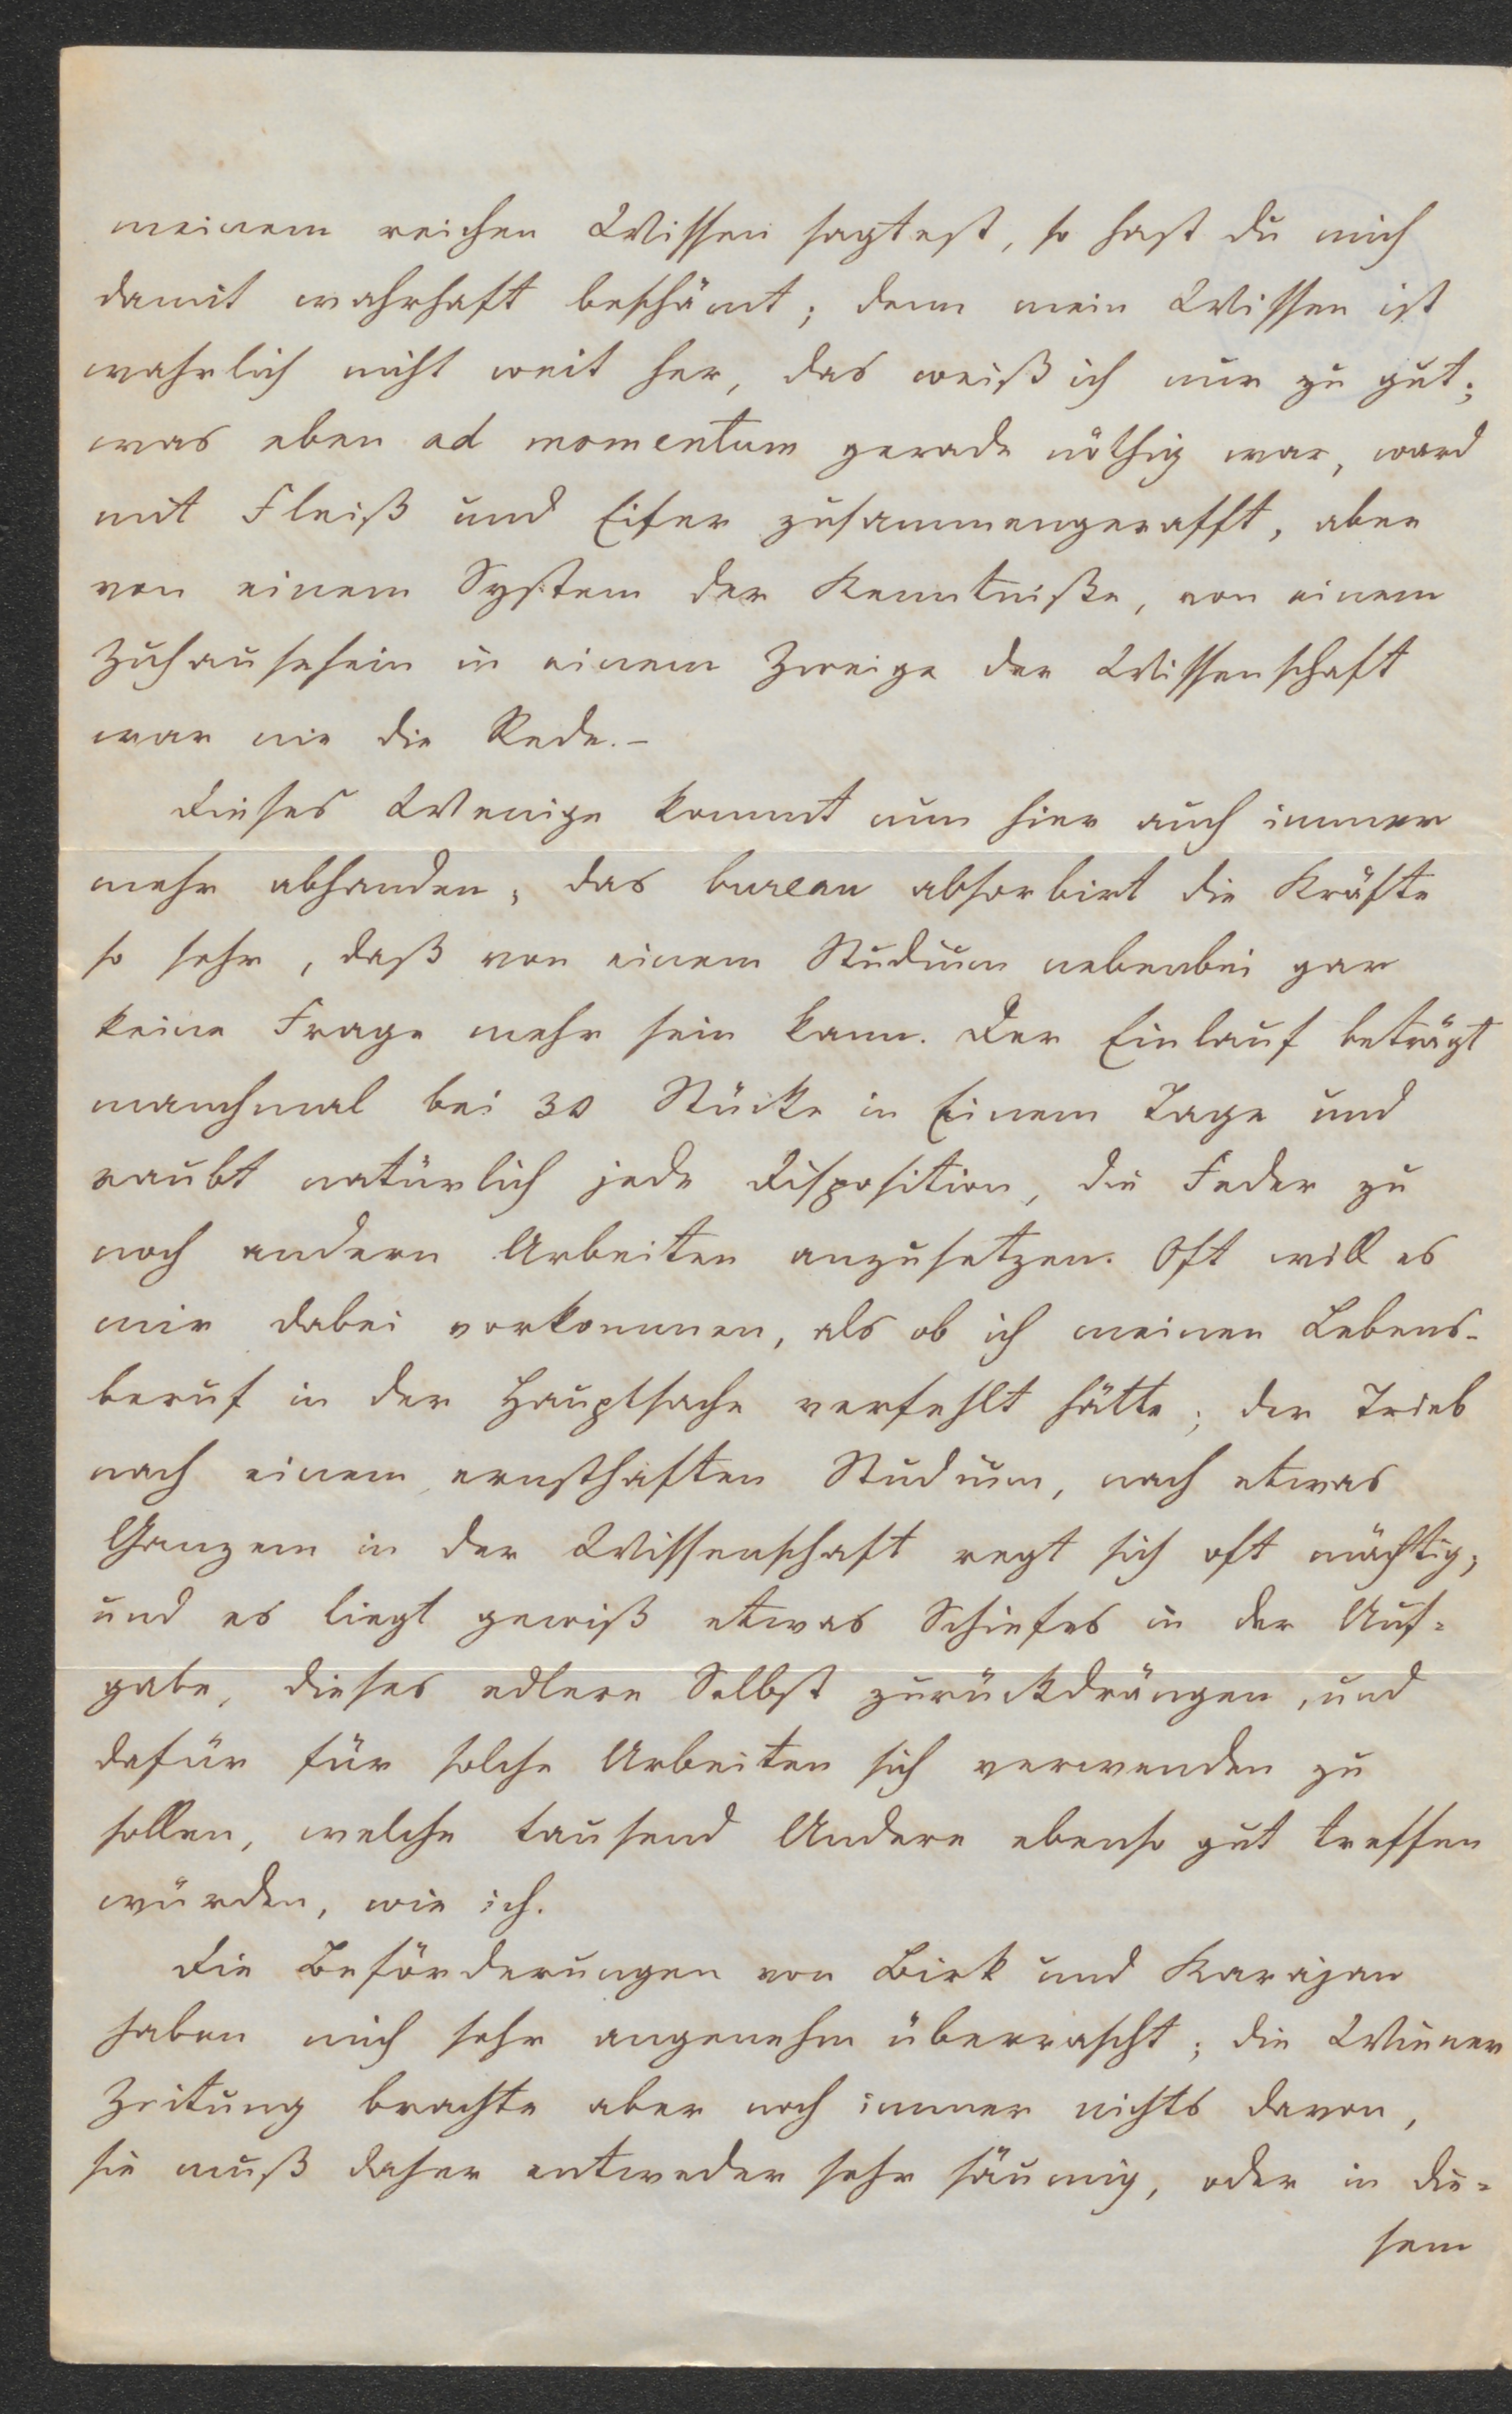 meinem reichen Wissen sagtest, so hast du mich
damit wahrhaft beschämt; denn mein Wissen ist
wahrlich nicht weit her, das weiß ich nur zu gut;
was eben ad momentum gerade nöthig war, ward
mit Fleiß und Eifer zusammengerafft, aber
von einem System der Kenntniße, von einem
Zuhausesein in einem Zweige der Wissenschaft
war nie die Rede. –
Dieses Wenige kommt nun hier auch immer
mehr abhanden; das bureau absorbirt die Kräfte
so sehr, daß von einem Studium nebenbei gar
keine Frage mehr sein kann. Der Einlauf beträgt
manchmal bei 30 Stücke in Einem Tage und
raubt natürlich jede Disposition, die Feder zu
noch andern Arbeiten anzusetzen. Oft will es
mir dabei vorkommen, als ob ich meinen Lebens-
beruf in der Hauptsache verfehlt hätte; der Trieb
nach einem ernsthaften Studium, nach etwas
Ganzem in der Wissenschaft regt sich oft mächtig;
und es liegt gewiß etwas Schiefes in der Auf=
gabe, dieses edlere Selbst zurückdrängen, und
dafür für solche Arbeiten sich verwenden zu
sollen, welche tausend Andere ebenso gut treffen
würden, wie ich.
Die Beförderungen von Birk und Karajan
haben mich sehr angenehm überrascht; die Wiener
Zeitung brachte aber noch immer nichts davon,
sie muß daher entweder sehr säumig, oder in die=
sem